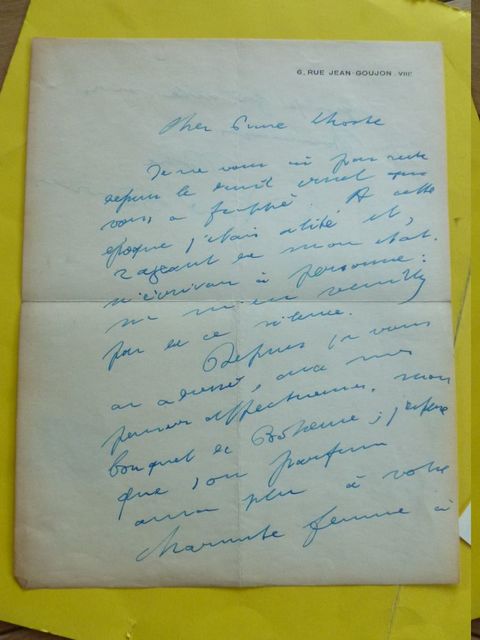 6, RUE JEAN GOUJON. VIIIᵉ
Cher Pierre Lhoste
Je ne vous ai pas écrit
depuis le deuil cruel qui
vous a frappé. A cette
époque j'étais alité et,
rageant de mon état.
n'écrivais à personne :
ne m'en veuillez
pas de ce silence.
Depuis je vous
ai adressé, avec mes
pensées affectueuses, mon
bouquet de Bohème ; j'espère
que son parfum
aura plu à votre
charmante femme à